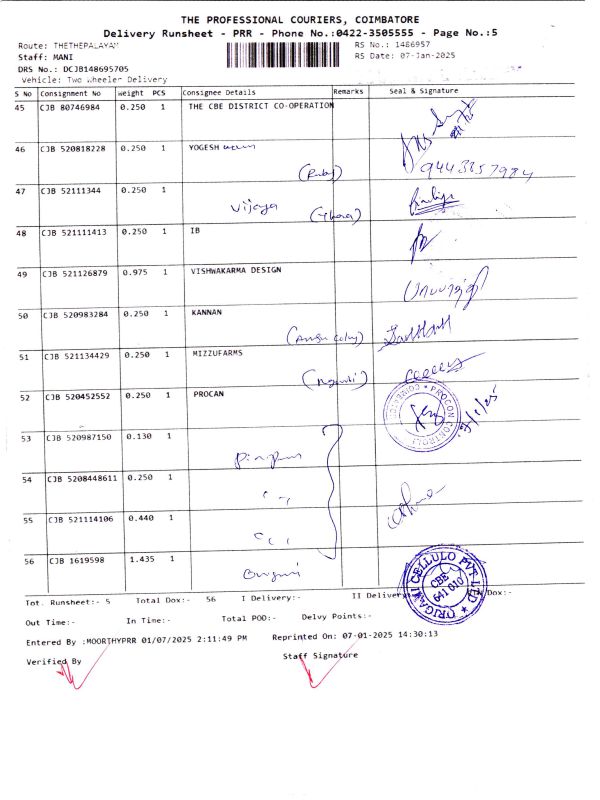 THE PROFESSIONAL COURIERS, COIMBATORE
Delivery Runsheet - PRR - Phone No.:0422-3505555 - Page No.:5
Route: THETHEPALAYAM
RS No.: 1486957
Staff: MANI
RS Date: 07-Jan-2025
DRS No.: DCJB148695705
Vehicle: Two Wheeler Delivery
S No Consignment No weight PCS Consignee Details Remarks Seal & Signature
45 CJB 80746984 0.250 1 THE CBE DISTRICT CO-OPERATION
46 CJB 520818228 0.250 1 YOGESH
(Ruby)
9443857984
47 CJB 52111344 0.250 1
Vijaya
48 CJB 521111413 0.250 1 IB
49 CJB 521126879 0.975 1 VISHWAKARMA DESIGN
50 CJB 520983284 0.250 1 KANNAN
51 CJB 521134429 0.250 1 MIZZUFARMS
52 CJB 520452552 0.250 1 PROCAN
PROCON CONTROLL
53 CJB 520987150 0.130 1
54 CJB 5208448611 0.250 1
55 CJB 521114106 0.440 1
56 CJB 1619598 1.435 1
ORIGAMI CELLULO PVT LTD
CBE
641 010
Tot. Runsheet:- 5 Total Dox:- 56 I Delivery:- II Delivery Dox:-
Out Time:- In Time:- Total POD:- Delvy Points:-
Entered By :MOORTHYPRR 01/07/2025 2:11:49 PM Reprinted On: 07-01-2025 14:30:13
Verified By Staff Signature